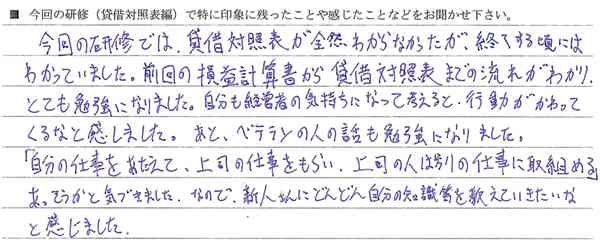 ■ 今回の研修（貸借対照表編）で特に印象に残ったことや感じたことなどをお聞かせ下さい。
今回の研修では、貸借対照表が全然わからなかったが、終了する頃には
わかっていました。前回の損益計算書から貸借対照表までの流れがわかり、
とても勉強になりました。自分も経営者の気持ちになって考えると、行動がかわって
くるなと感じました。あと、ベテランの人の話も勉強になりました。
「自分の仕事をあたえて、上司の仕事をもらい、上司の人は別の仕事に取組める」
あっそうかと気づきました。なので、新人さんにどんどん自分の知識等を教えていきたいな
と感じました。